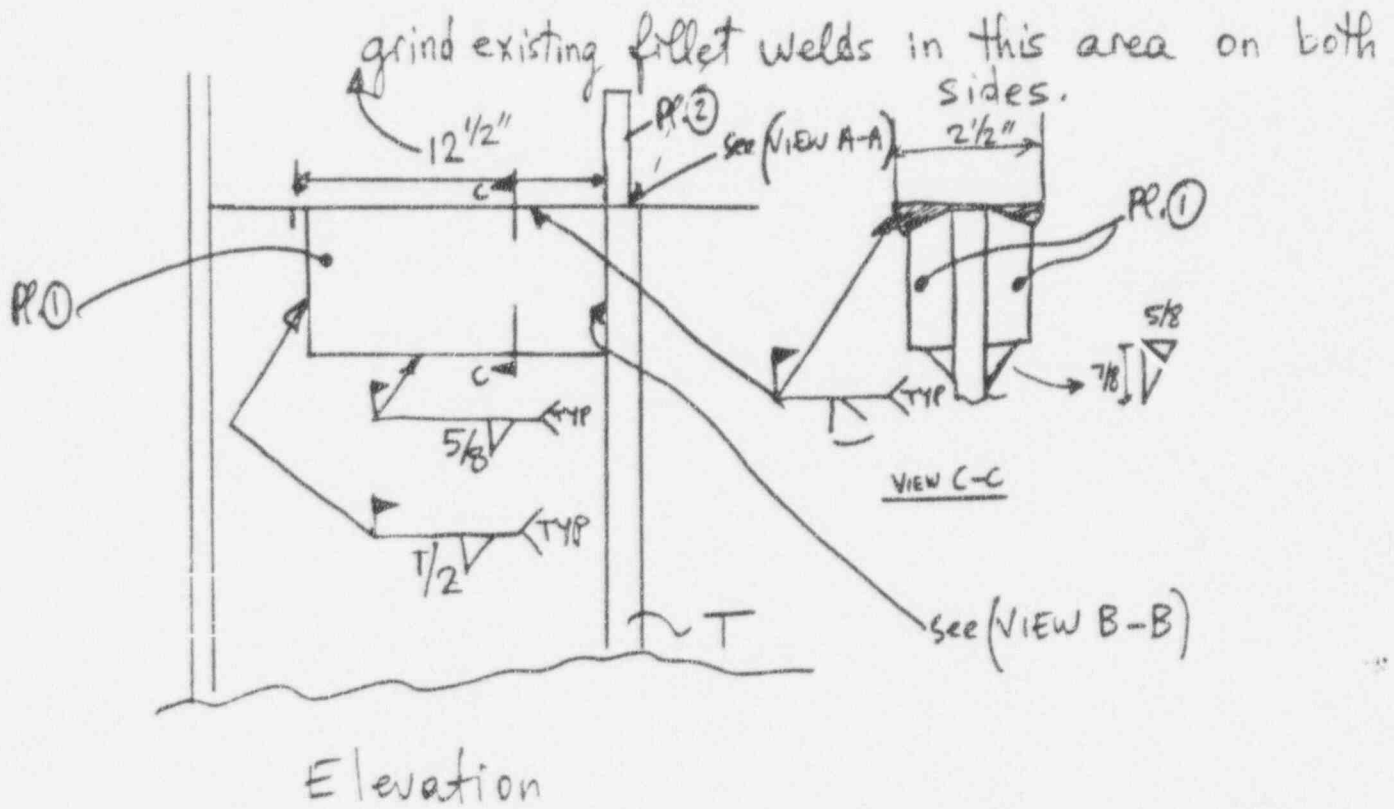 grind existing fillet welds in this area on both
sides.
12 1/2"
Pl.②
see (VIEW A-A)
2 1/2"
C
Pl.①
Pl.①
5/8
7/8
C
TYP
5/8
TYP
VIEW C-C
TYP
1/2
T
see (VIEW B-B)
Elevation